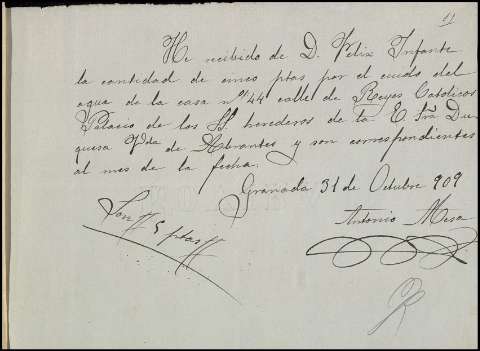 11
He recibido de D. Felix Infante
la cantidad de cinco ptas por el cuido del
agua de la casa nº 44 calle de Reyes Catolicos
Palacio de los Ss. herederos de la E. Sra Du-
quesa Vda de Abrantes y son correspondientes
al mes de la fecha.
Granada 31 de Octubre 909
Son # 5 ptas #
Antonio Mesa